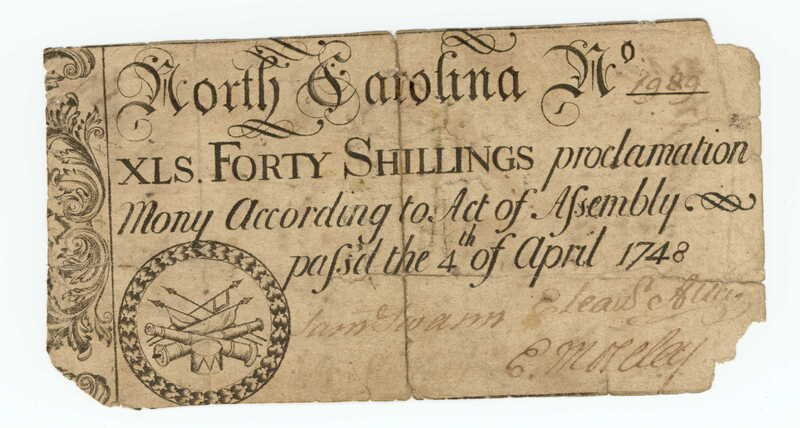 North Carolina Nº 1989
XLS. FORTY SHILLINGS proclamation
Mony According to Act of Aſsembly
paſs'd the 4th of April 1748
Sam Swann Eleazr Allen
E. Moseley